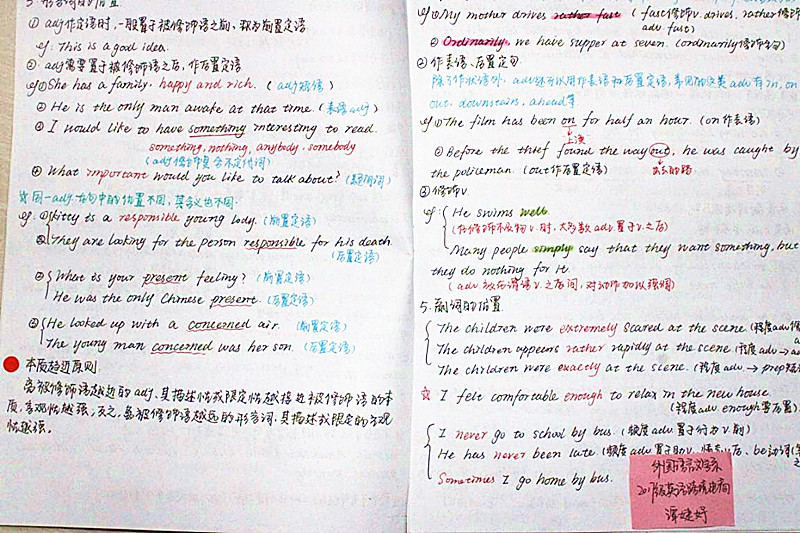 ① adj作定语时,一般置于被修饰语之前、称为前置定语
eg: This is a good idea.
② adj需要置于被修饰语之后,作后置定语
eg ① She has a family happy and rich. (adj短语)
② He is the only man awake at that time. (表语adj)
③ I would like to have something interesting to read.
something, nothing, anybody, somebody
(adj修饰复合不定代词)
④ What important would you like to talk about? (疑问词)
☆ 同一adj在句中的位置不同,其含义也不同.
eg. ① Kitty is a responsible young lady. (前置定语)
They are looking for the person responsible for his death.
(后置定语)
② What is your present feeling? (前置定语)
He was the only Chinese present. (后置定语)
③ He looked up with a concerned air. (前置定语)
The young man concerned was her son. (后置定语)
本质趋近原则:
离被修饰语越近的adj,其描述性或限定性越接近被修饰语的本
质,客观性越强;反之,离被修饰语越远的形容词,其描述或限定的主观
性越强.
eg ① My mother drives rather fast (fast修饰v. drives, rather修饰
adv. fast)
② Ordinarily, we have supper at seven. (ordinarily修饰全句)
② 作表语、后置定句
除了作状语外, adv还可以用作表语和后置定语,常见的这类adv有in, on
out, downstairs, ahead等
eg ① The film has been on for half an hour. (on作表语)
上演
② Before the thief found the way out, he was caught by
the policeman. (out作后置定语) 出去的路
③ 修饰v
eg: He swims well.
(在修饰不及物v.时,大多数adv置于v.之后)
Many people simply say that they want something, but
they do nothing for it.
(adv.放在谓语v.之后间,对动作加以强调)
5. 副词的位置
The children were extremely scared at the scene (程度adv修
The children appears rather rapidly at the scene (程度adv→a
The children were exactly at the scene. (程度adv→prep短语
☆ I felt comfortable enough to relax in the new house.
(程度adv enough要后置)
I never go to school by bus. (频度adv置于行为v.前)
He has never been late. (频度adv置于助v、情态v后、be动词
Sometimes I go home by bus.
外国语言文学系
2017级英语